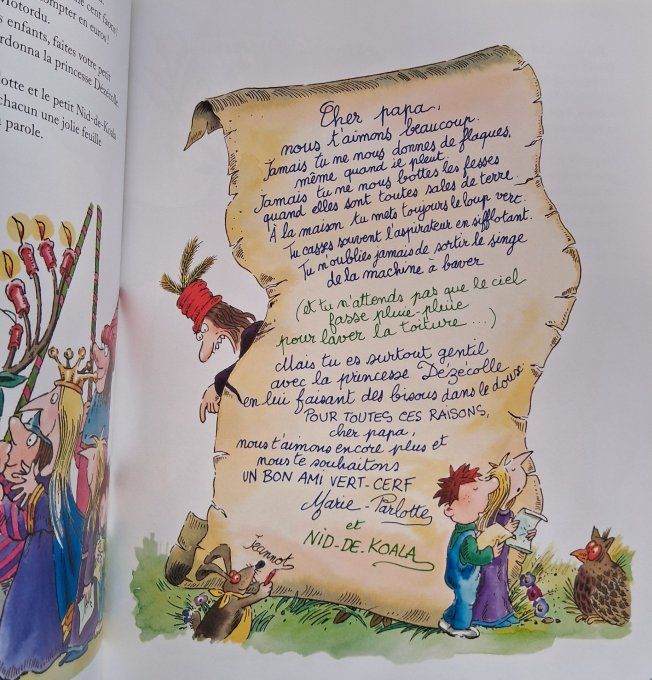 cent faons!
compter en euros!
Motordu.
s enfants, faites votre petit
rdonna la princesse Dézécolle
lotte et le petit Nid-de-Koala
chacun une jolie feuille
parole.
Cher papa,
nous t'aimons beaucoup.
Jamais tu ne nous donnes de flaques,
même quand il pleut.
Jamais tu ne nous bottes les fesses
quand elles sont toutes sales de terre.
À la maison tu mets toujours le loup vert.
Tu casses souvent l'aspirateur en sifflotant.
Tu n'oublies jamais de sortir le singe
de la machine à baver
(et tu n'attends pas que le ciel
fasse pluie-pluie
pour laver la toiture...)
Mais tu es surtout gentil
avec la princesse Dézécolle
en lui faisant des bisous dans le doux.
POUR TOUTES CES RAISONS,
cher papa,
nous t'aimons encore plus et
nous te souhaitons
UN BON AMI VERT-CERF
Marie-Parlotte
et
NID-DE-KOALA
Jeannot